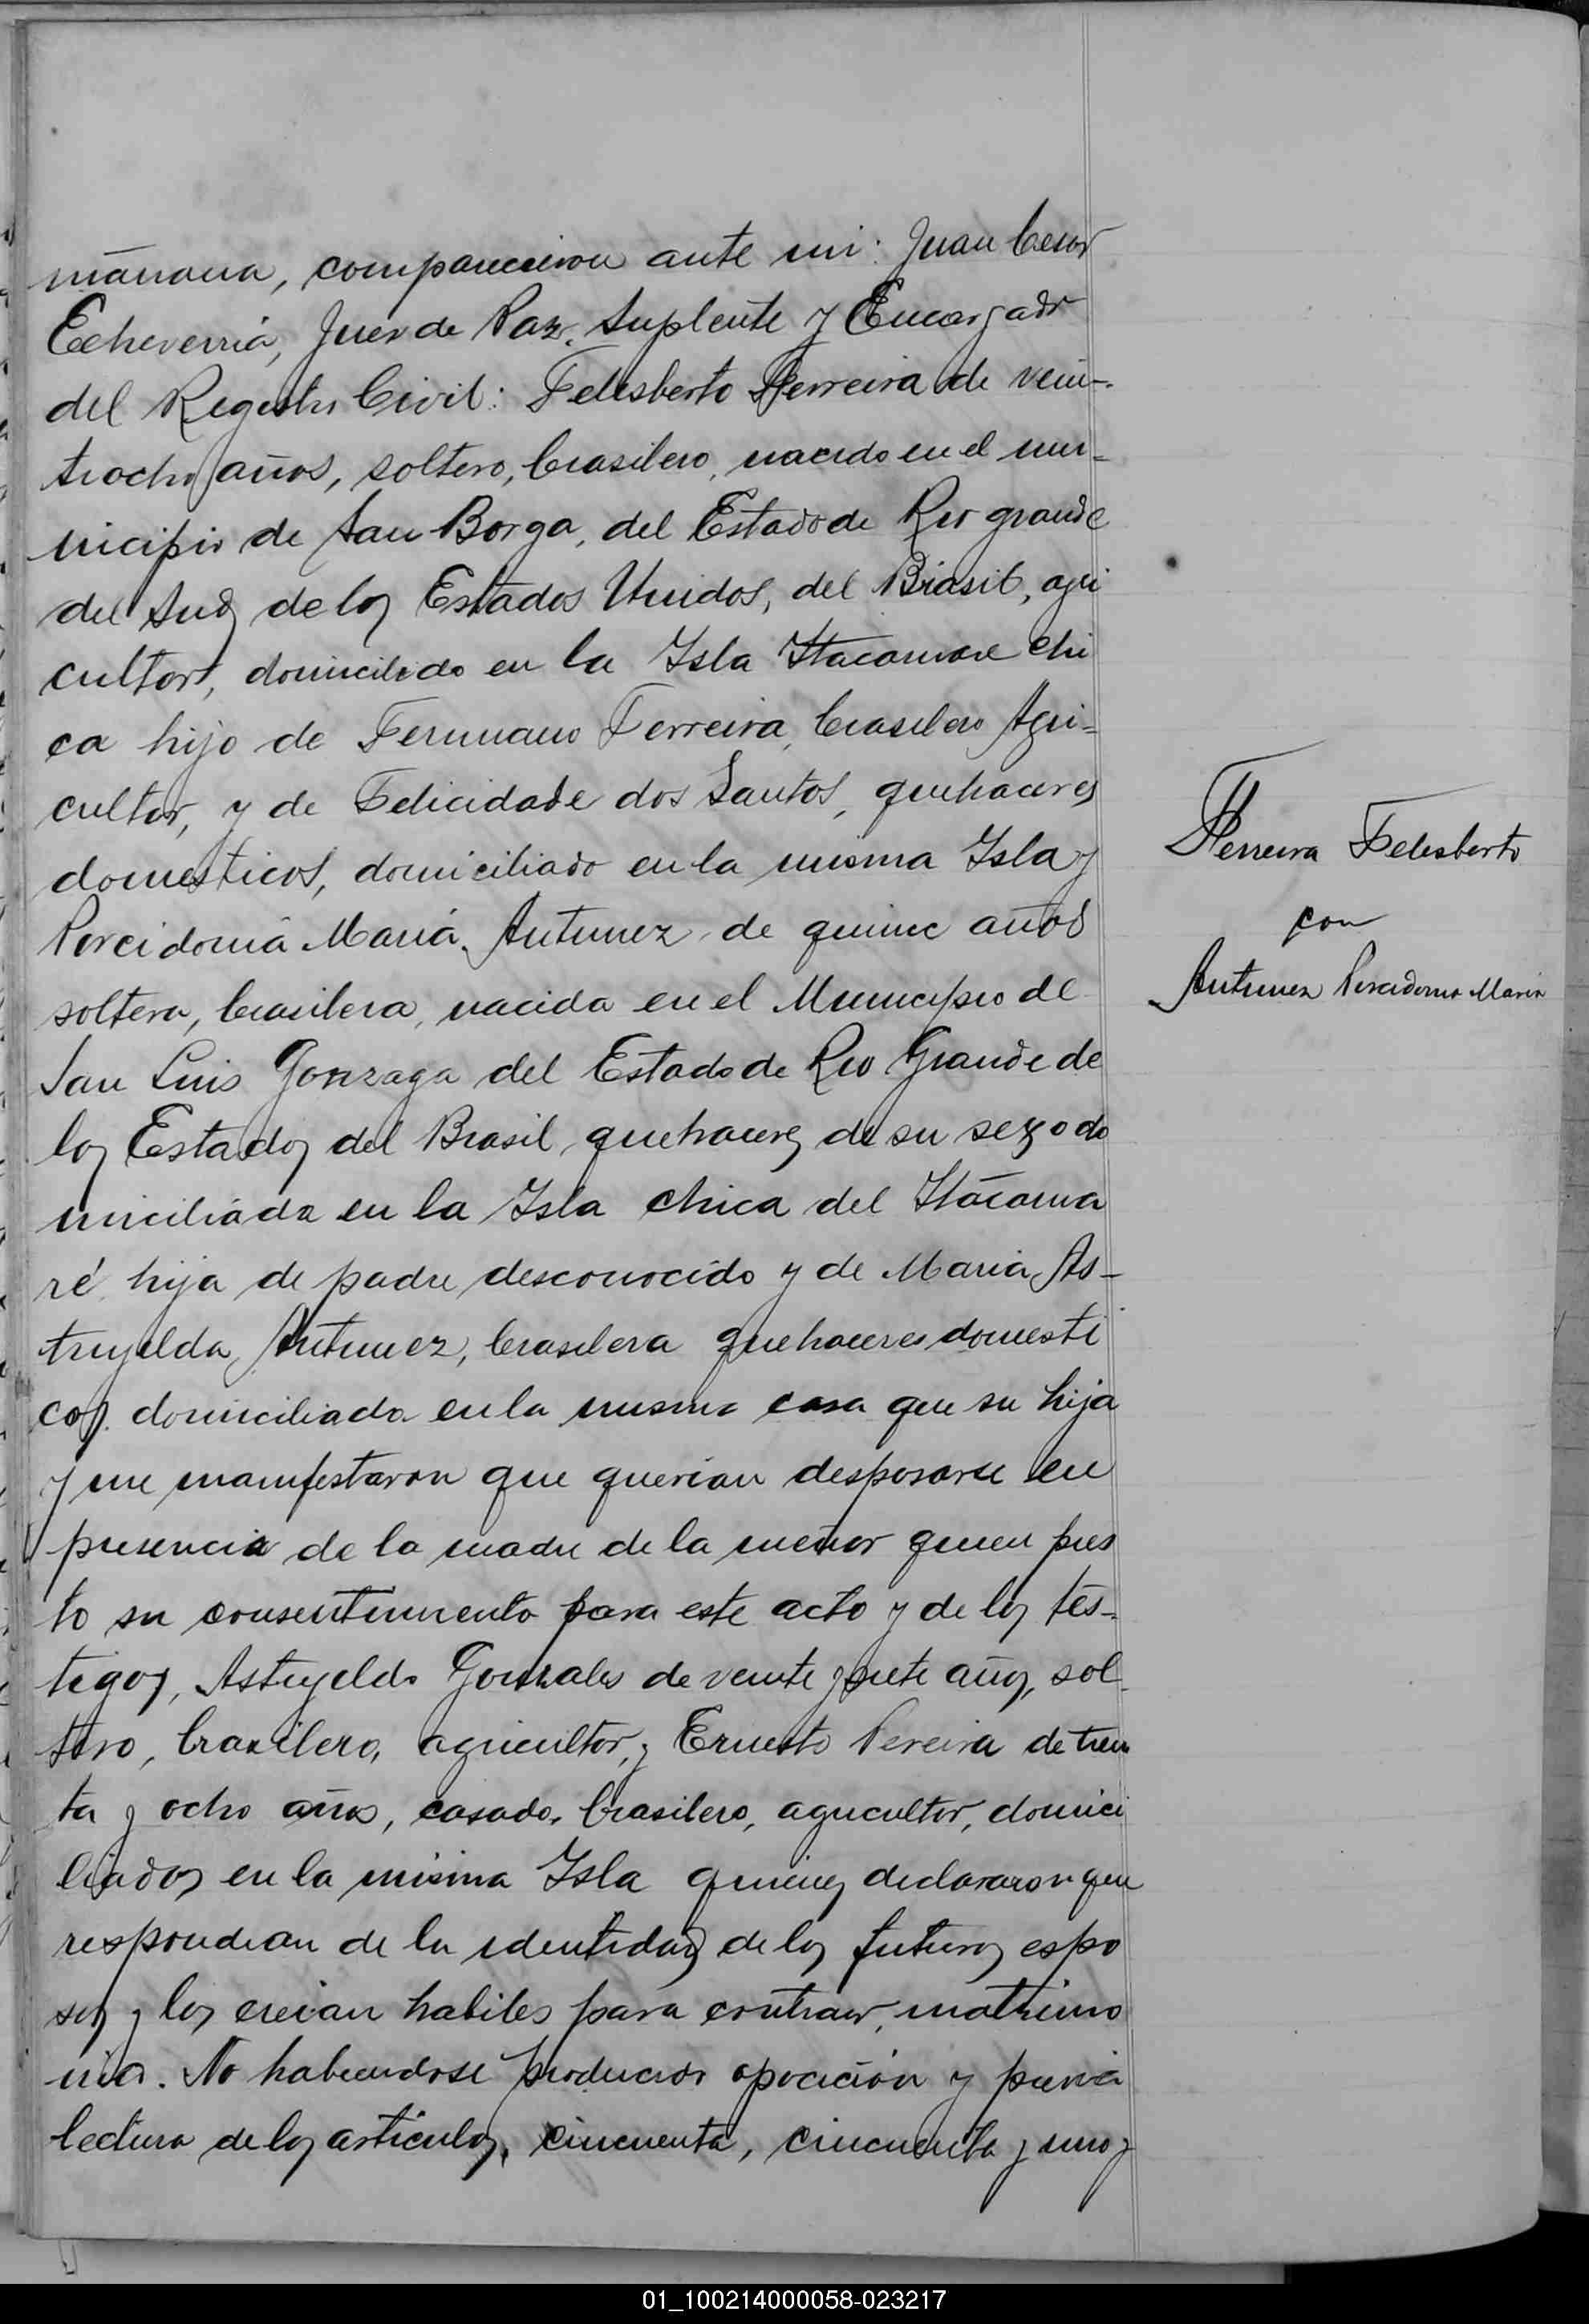 mañana, comparecieron ante mi: Juan Cesar
Echeverria, Juez de Paz Suplente y Encargado
del Registro Civil: Felisberto Ferreira de vein-
tiocho años, soltero, brasilero, nacido en el mu-
nicipio de San Borga, del Estado de Rio grande
del Sud de los Estados Unidos, del Brasil, agri
cultor, domiciliado en la Isla Itacaruare chi
ca hijo de Firmiano Ferreira, brasilero Agri-
cultor, y de Felicidade dos Santos, quehaceres
domesticos, domiciliado en la misma Isla y
Porcidoma Maria Antunez de quince años
soltera, brasilera, nacida en el Municipio de
San Luis Gonzaga del Estado de Rio Grande de
los Estados del Brasil, quehaceres de su sexo do
miciliada en la Isla chica del Itacarua
ré hija de padre desconocido y de Maria As-
trugilda Antunez, brasilera quehaceres domesti
cos domiciliada en la misma casa que su hija
y me manifestaron que querian desposarse en
presencia de la madre de la menor quien pres
to su consentimiento para este acto y de los tes-
tigos, Astrugildo Gonzales de veinte y siete años, sol
tero, brazilero, agricultor, y Ernesto Pereira de trein
ta y ocho años, casado, brasilero, agricultor, domici
liados en la misma Isla quienes declararon que
respondian de la identidad de los futuros espo
sos y los creian habiles para contraer, matrimo
nio. No habiendose producido oposición y previa
lectura de los articulos, cincuenta, cincuenta y uno y
Ferreira Felisberto
con
Antunez Porcidoma Maria
01_100214000058-023217